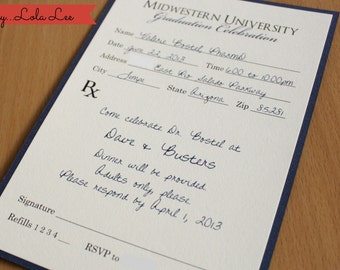 y...Lola Lee
MIDWESTERN UNIVERSITY
Graduation Celebration
Name Valerie Bostel PharmD
Date June 22, 2013 Time 6:00 to 10:00pm
Address East Rio Salado Parkway
City Tempe State Arizona Zip 85281
Rx
Come celebrate Dr. Bostel at
Dave & Busters
Dinner will be provided
Adults only, please
Please respond by April 1, 2013
Signature
Refills 1 2 3 4
RSVP to